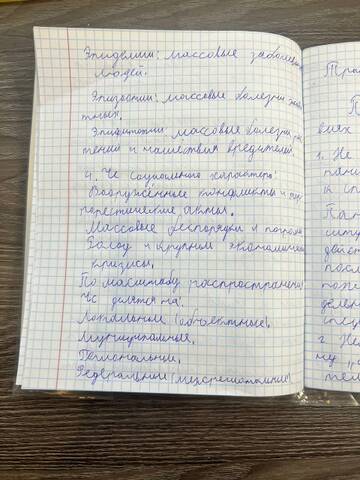 Эпидемии: массовые заболева
людей.
Эпизоотии: массовые болезни жи
тных.
Эпифитотии массовые болезни ра
тений и нашествия вредителей
4. Чс социального характера:
Вооружённые конфликты и тер
рористические акты.
Массовые беспорядки и погромы
Голод и крупные экономические
кризисы.
По масштабу распространения
Чс делятся на:
Локальные (объектные),
Муниципальные,
Региональные,
Федеральные (межрегиональные)
Тра
П
виях
1. Не
пани
к сп
Пан
ситу
дейст
посл
поже
делен
спец
2. Не
му